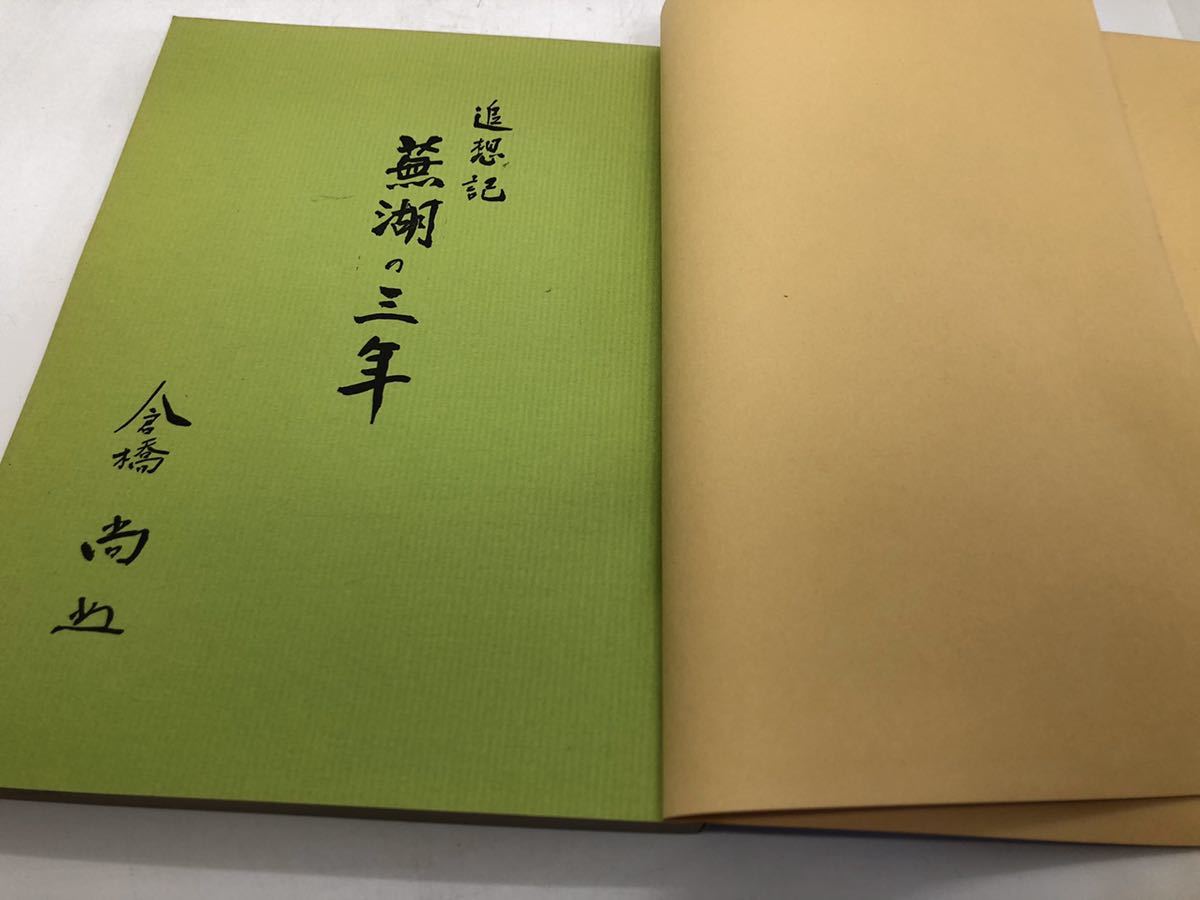 追想記
蕪湖の三年
倉橋 尚